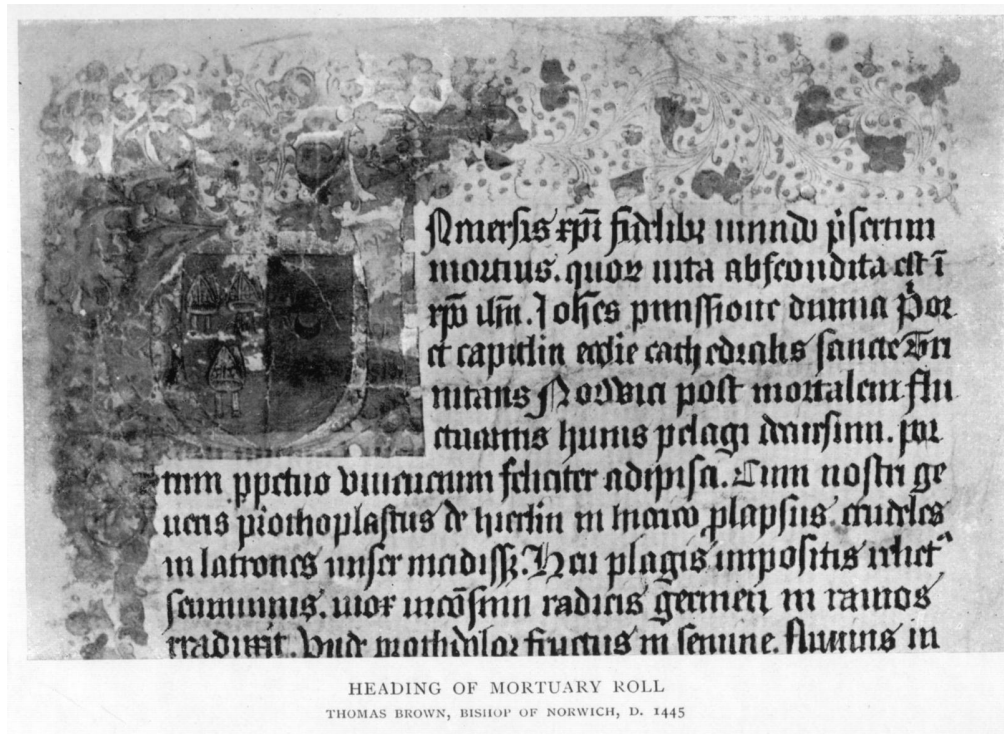 Niversis xp̄i fidelibꝫ mundo p̄sertim
mortuis. quoꝝ vita abscondita est ī
xp̄o ih̄u. Joh̄es permissione divina P̄or
et capitlm eccl̄ie cathedralis sancte Tri
nitatis Norwici post mortalem flu
ctuantis huius pelagi decursum. por
tum ꝑpetuo viuentium feliciter adipisci. Cum nostri ge
neris prothoplastus de hierlm in ierico ꝓlapsus crudeles
in latrones miser incidissꝫ. Heu plagis impositis
seminiuis. mox radicis germen in ramos
Vnde fructus in semine. in
HEADING OF MORTUARY ROLL
THOMAS BROWN, BISHOP OF NORWICH, D. 1445